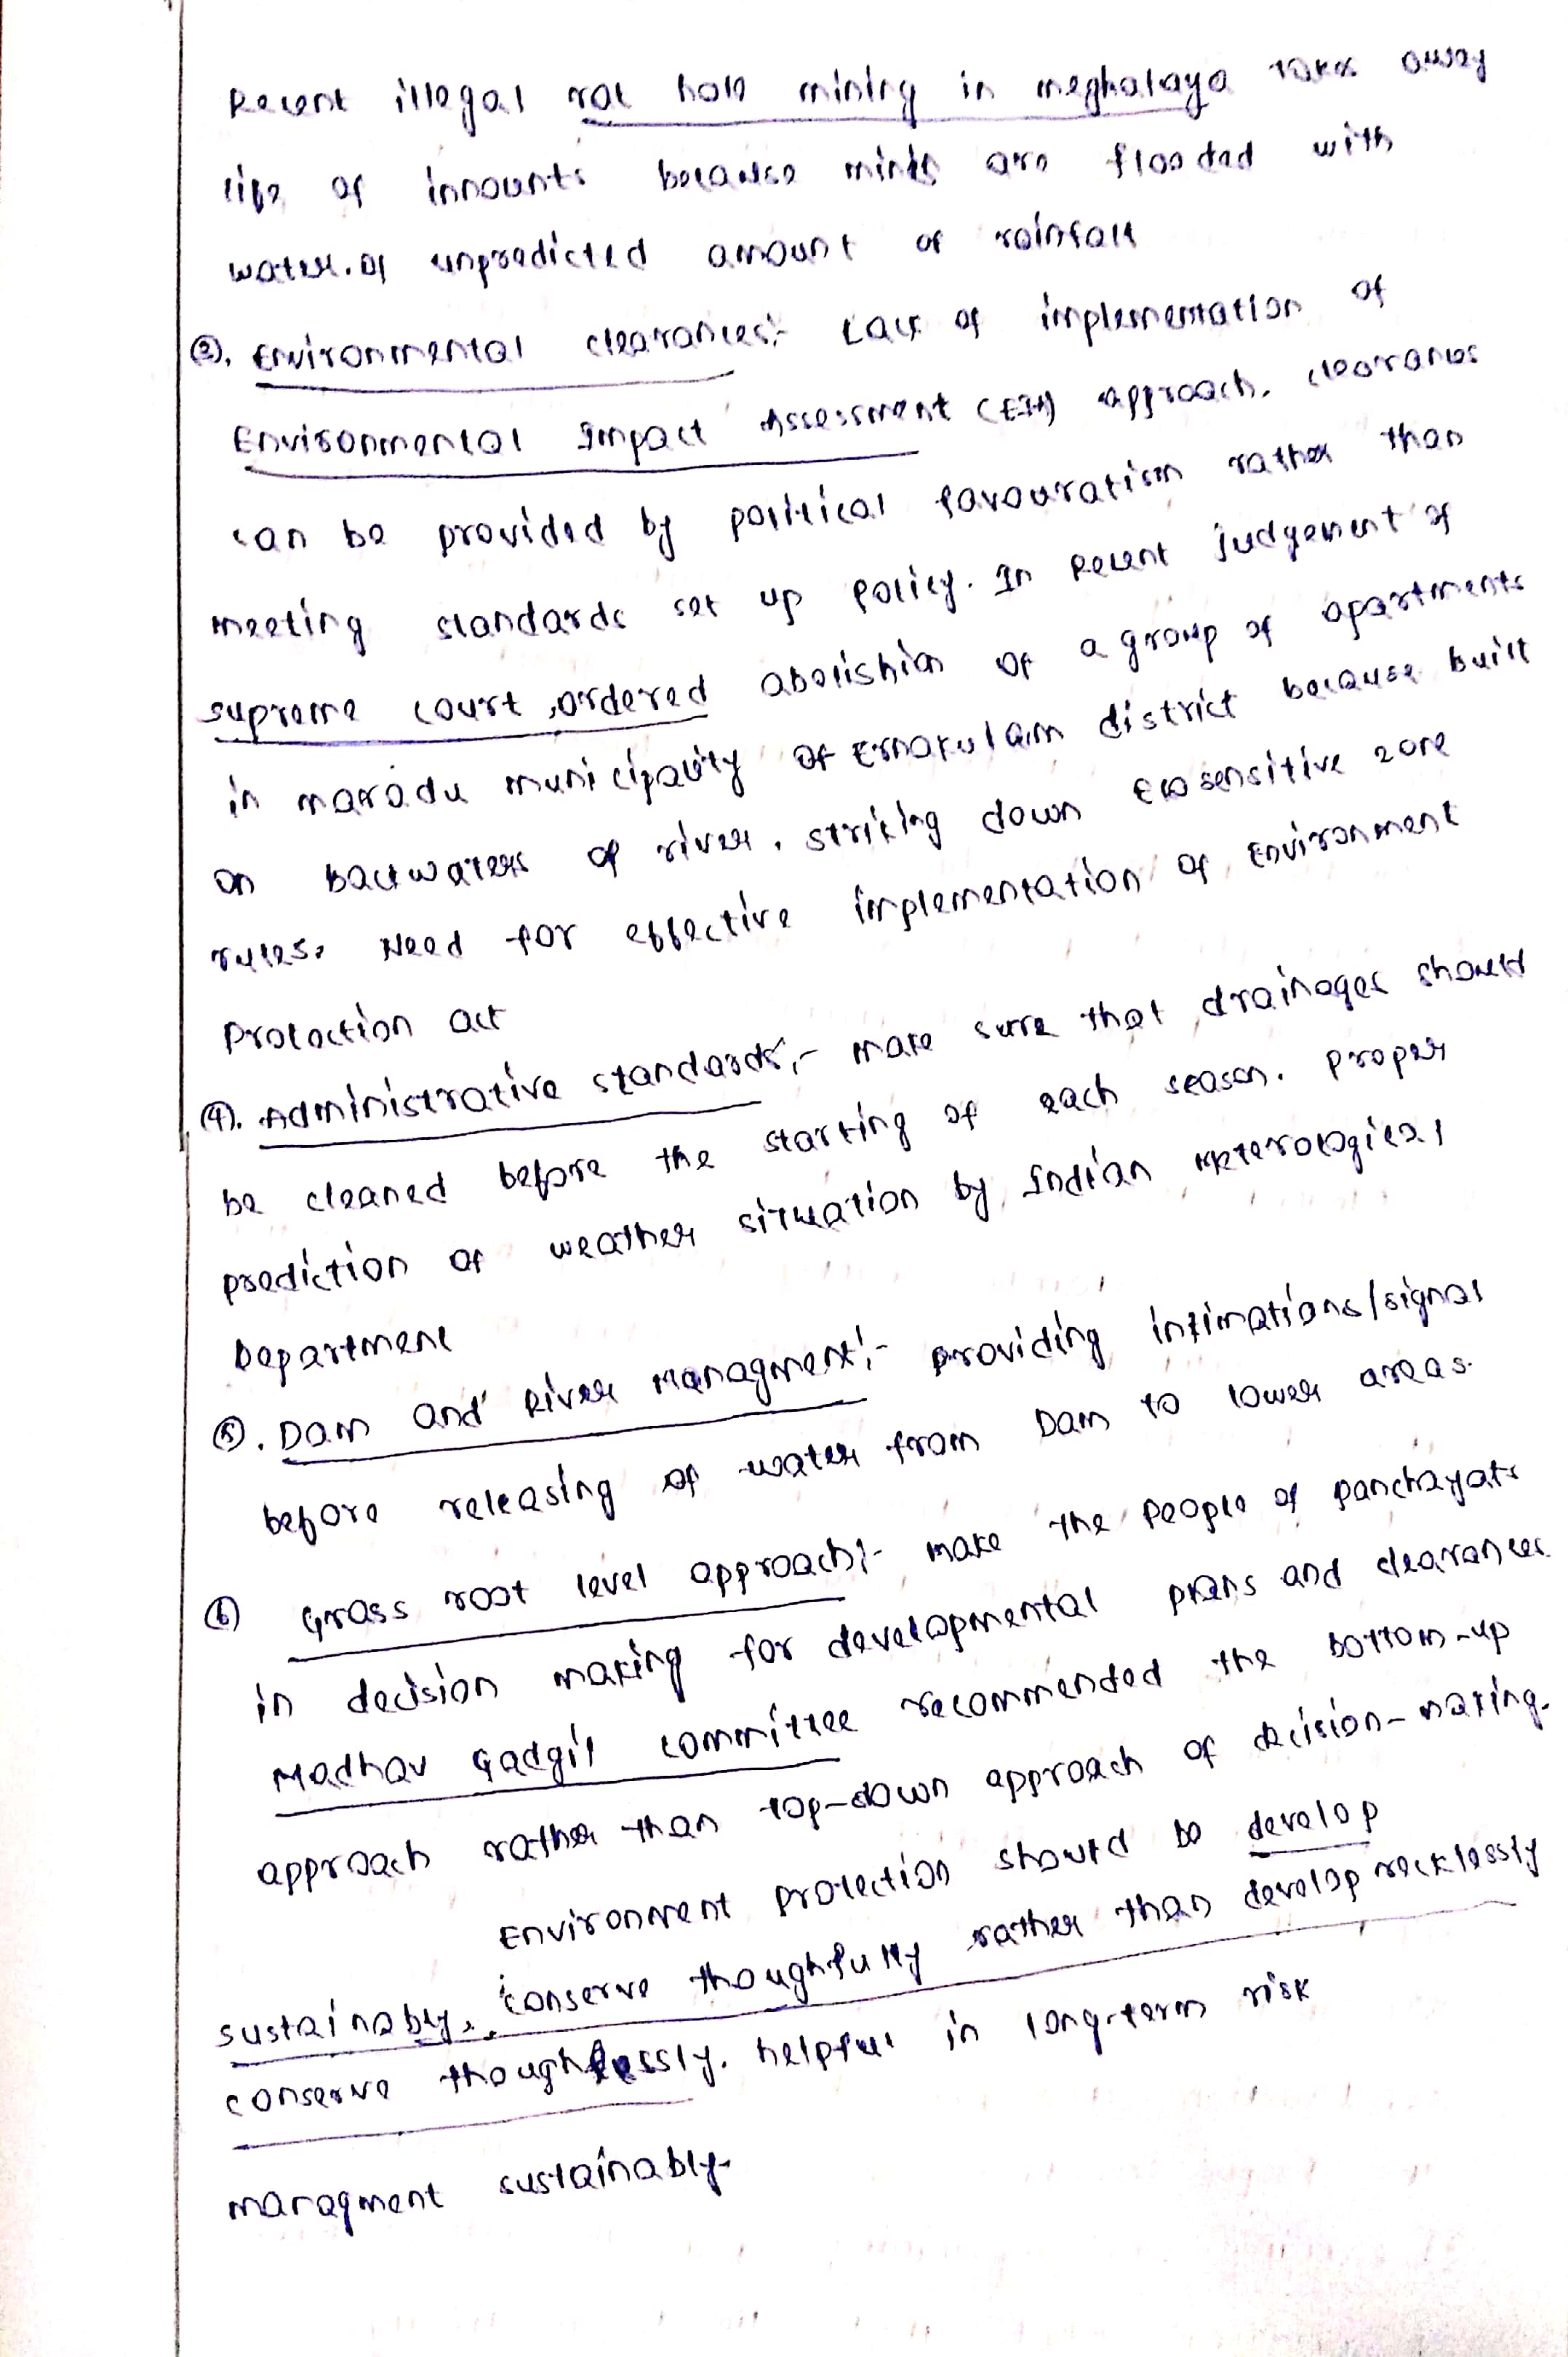 Recent illegal rat hole mining in meghalaya takes away
life of innounts because mines are flooded with
water. of unpredicted amount of rainfall
③. Environmental clearances:- Lack of implementation of
Environmental Impact Assessment (EIA) approach. clearances
can be provided by political favouratism rather than
meeting standards set up policy. In Recent judgement of
supreme court, ordered abolishion of a group of apartments
in maradu municipality of Ernakulam district because built
on backwaters of river, striking down Eco sensitive zone
rules. Need for effective implementation of Environment
Protection act
④. Administrative standards:- make sure that drainages should
be cleaned before the starting of each season. Proper
prediction of weather situation by Indian Meterological
Department
⑤. Dam and River Managment:- providing intimations/signal
before releasing of water from Dam to lower areas.
⑥ Grass root level approach:- make the people of panchayats
in decision making for developmental plans and clearances.
Madhav Gadgil committee recommended the bottom-up
approach rather than top-down approach of decision-making.
Environment protection should be develop
sustainably, conserve thoughfully rather than develop recklessly
conserve thoughlessly. helpful in long-term risk
managment sustainably.